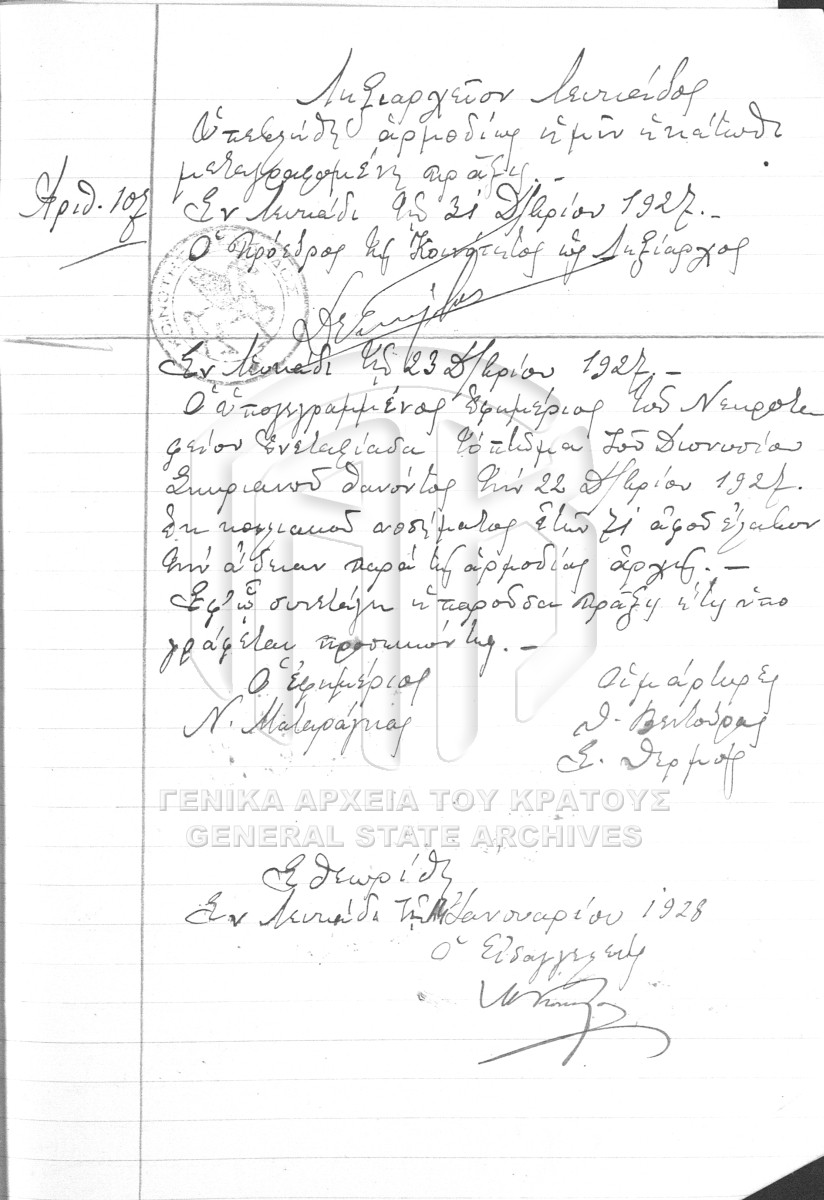 Ληξιαρχεῖον Λευκάδος
Ὑπεβλήθη ἁρμοδίως ἡμῖν ἡ κάτωθι
μεταγραφομένη πρᾶξις.—
Ἀριθ. 107
Ἐν Λευκάδι τῇ 31 Δβρίου 1927.—
Ὁ Πρόεδρος τῆς Κοινότητος ὡς Ληξίαρχος
Ἐν Λευκάδι τῇ 23 Δβρίου 1927.—
Ὁ ὑπογεγραμμένος ἐφημέριος τοῦ Νεκροτα
φείου ἐνεταφίασα τὸ πτῶμα τοῦ Διονυσίου
Σκιριανοῦ θανόντος τὴν 22 Δβρίου 1927.
ἐκ κοιλιακοῦ νοσήματος ἐτῶν 71 ἀφοῦ ἔλαβον
τὴν ἄδειαν παρὰ τῆς ἁρμοδίας ἀρχῆς.—
Ἐφ' ᾧ συνετάγη ἡ παροῦσα πρᾶξις ἥτις ὑπο
γράφεται προσηκόντως.—
Ὁ Ἐφημέριος
Οἱ μάρτυρες
Ν. Ματαράγκας
Θ. Βεντούρας
Σ. Θερμός
ΓΕΝΙΚΑ ΑΡΧΕΙΑ ΤΟΥ ΚΡΑΤΟΥΣ
GENERAL STATE ARCHIVES
Ἐθεωρήθη
Ἐν Λευκάδι τῇ Ἰανουαρίου 1928
Ὁ Εἰσαγγελεύς